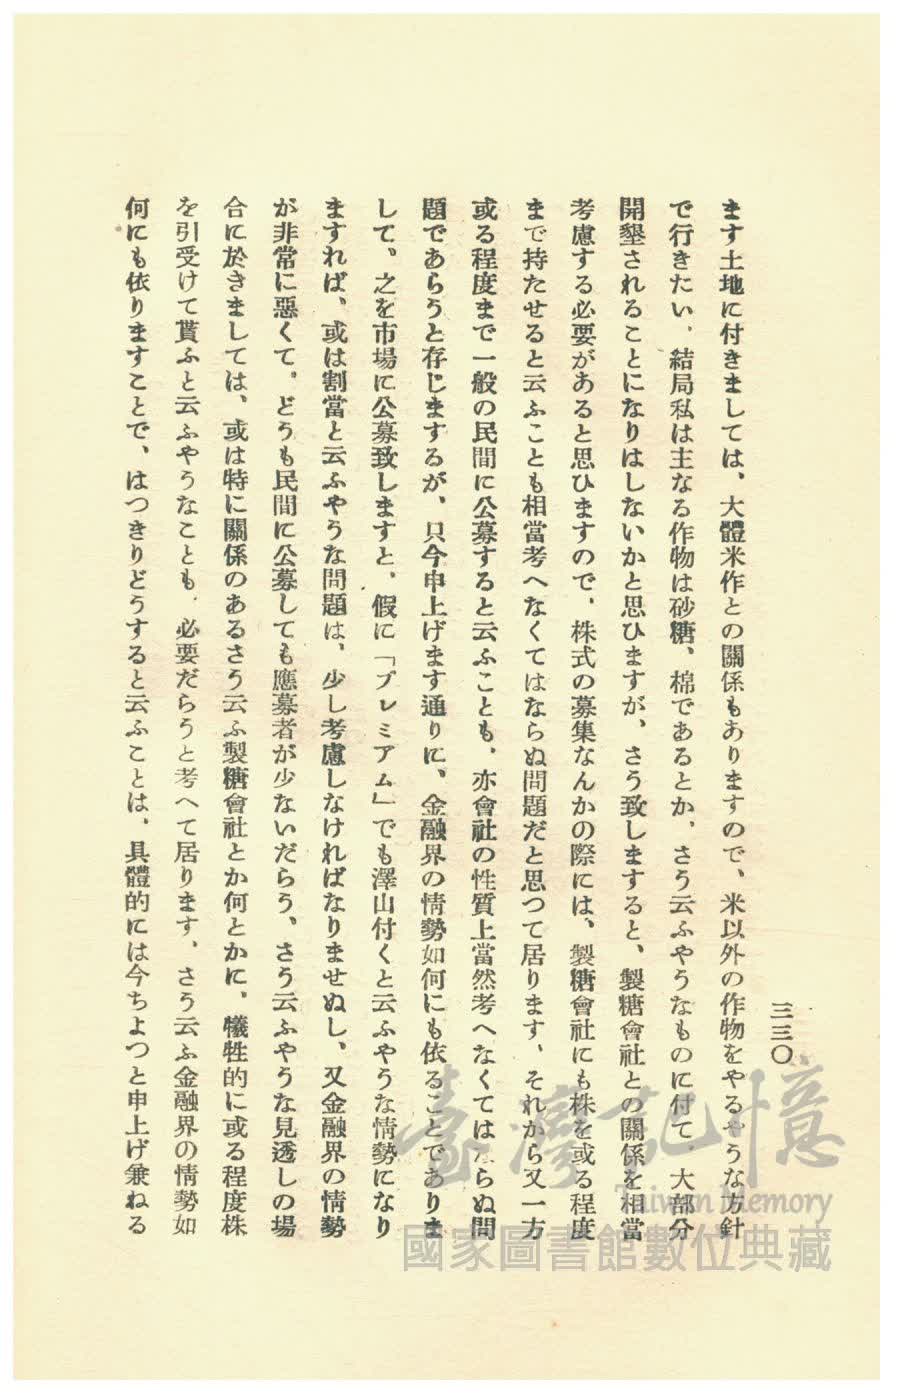 三三〇
ます土地に付きましては、大體米作との關係もありますので、米以外の作物をやるやうな方針
で行きたい、結局私は主なる作物は砂糖、棉であるとか、さう云ふやうなものに付て、大部分
開墾されることになりはしないかと思ひますが、さう致しますると、製糖會社との關係を相當
考慮する必要があると思ひますので、株式の募集なんかの際には、製糖會社にも株を或る程度
まで持たせると云ふことも相當考へなくてはならぬ問題だと思つて居ります、それから又一方
或る程度まで一般の民間に公募すると云ふことも、亦會社の性質上當然考へなくてはならぬ問
題であらうと存じまするが、只今申上げます通りに、金融界の情勢如何にも依ることでありま
して、之を市場に公募致しますと、假に「プレミアム」でも澤山付くと云ふやうな情勢になり
ますれば、或は割當と云ふやうな問題は、少し考慮しなければなりませぬし、又金融界の情勢
が非常に惡くて、どうも民間に公募しても應募者が少ないだらう、さう云ふやうな見透しの場
合に於きましては、或は特に關係のあるさう云ふ製糖會社とか何とかに、犧牲的に或る程度株
を引受けて貰ふと云ふやうなことも、必要だらうと考へて居ります、さう云ふ金融界の情勢如
何にも依りますことで、はつきりどうすると云ふことは、具體的には今ちよつと申上げ兼ねる
臺灣記憶
Taiwan Memory
國家圖書館數位典藏